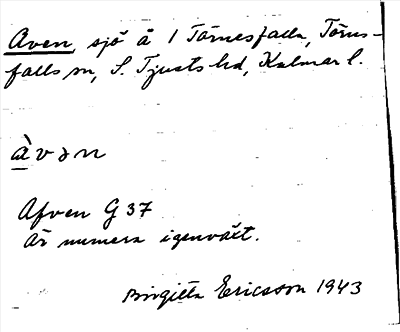 Aven sjö å 1 Törnesfalla, Törns-
falls sn, S. Tjusts hd, Kalmar l.
àvən
Afven G 37
Är numera igenväxt.
Birgitta Ericsson 1943